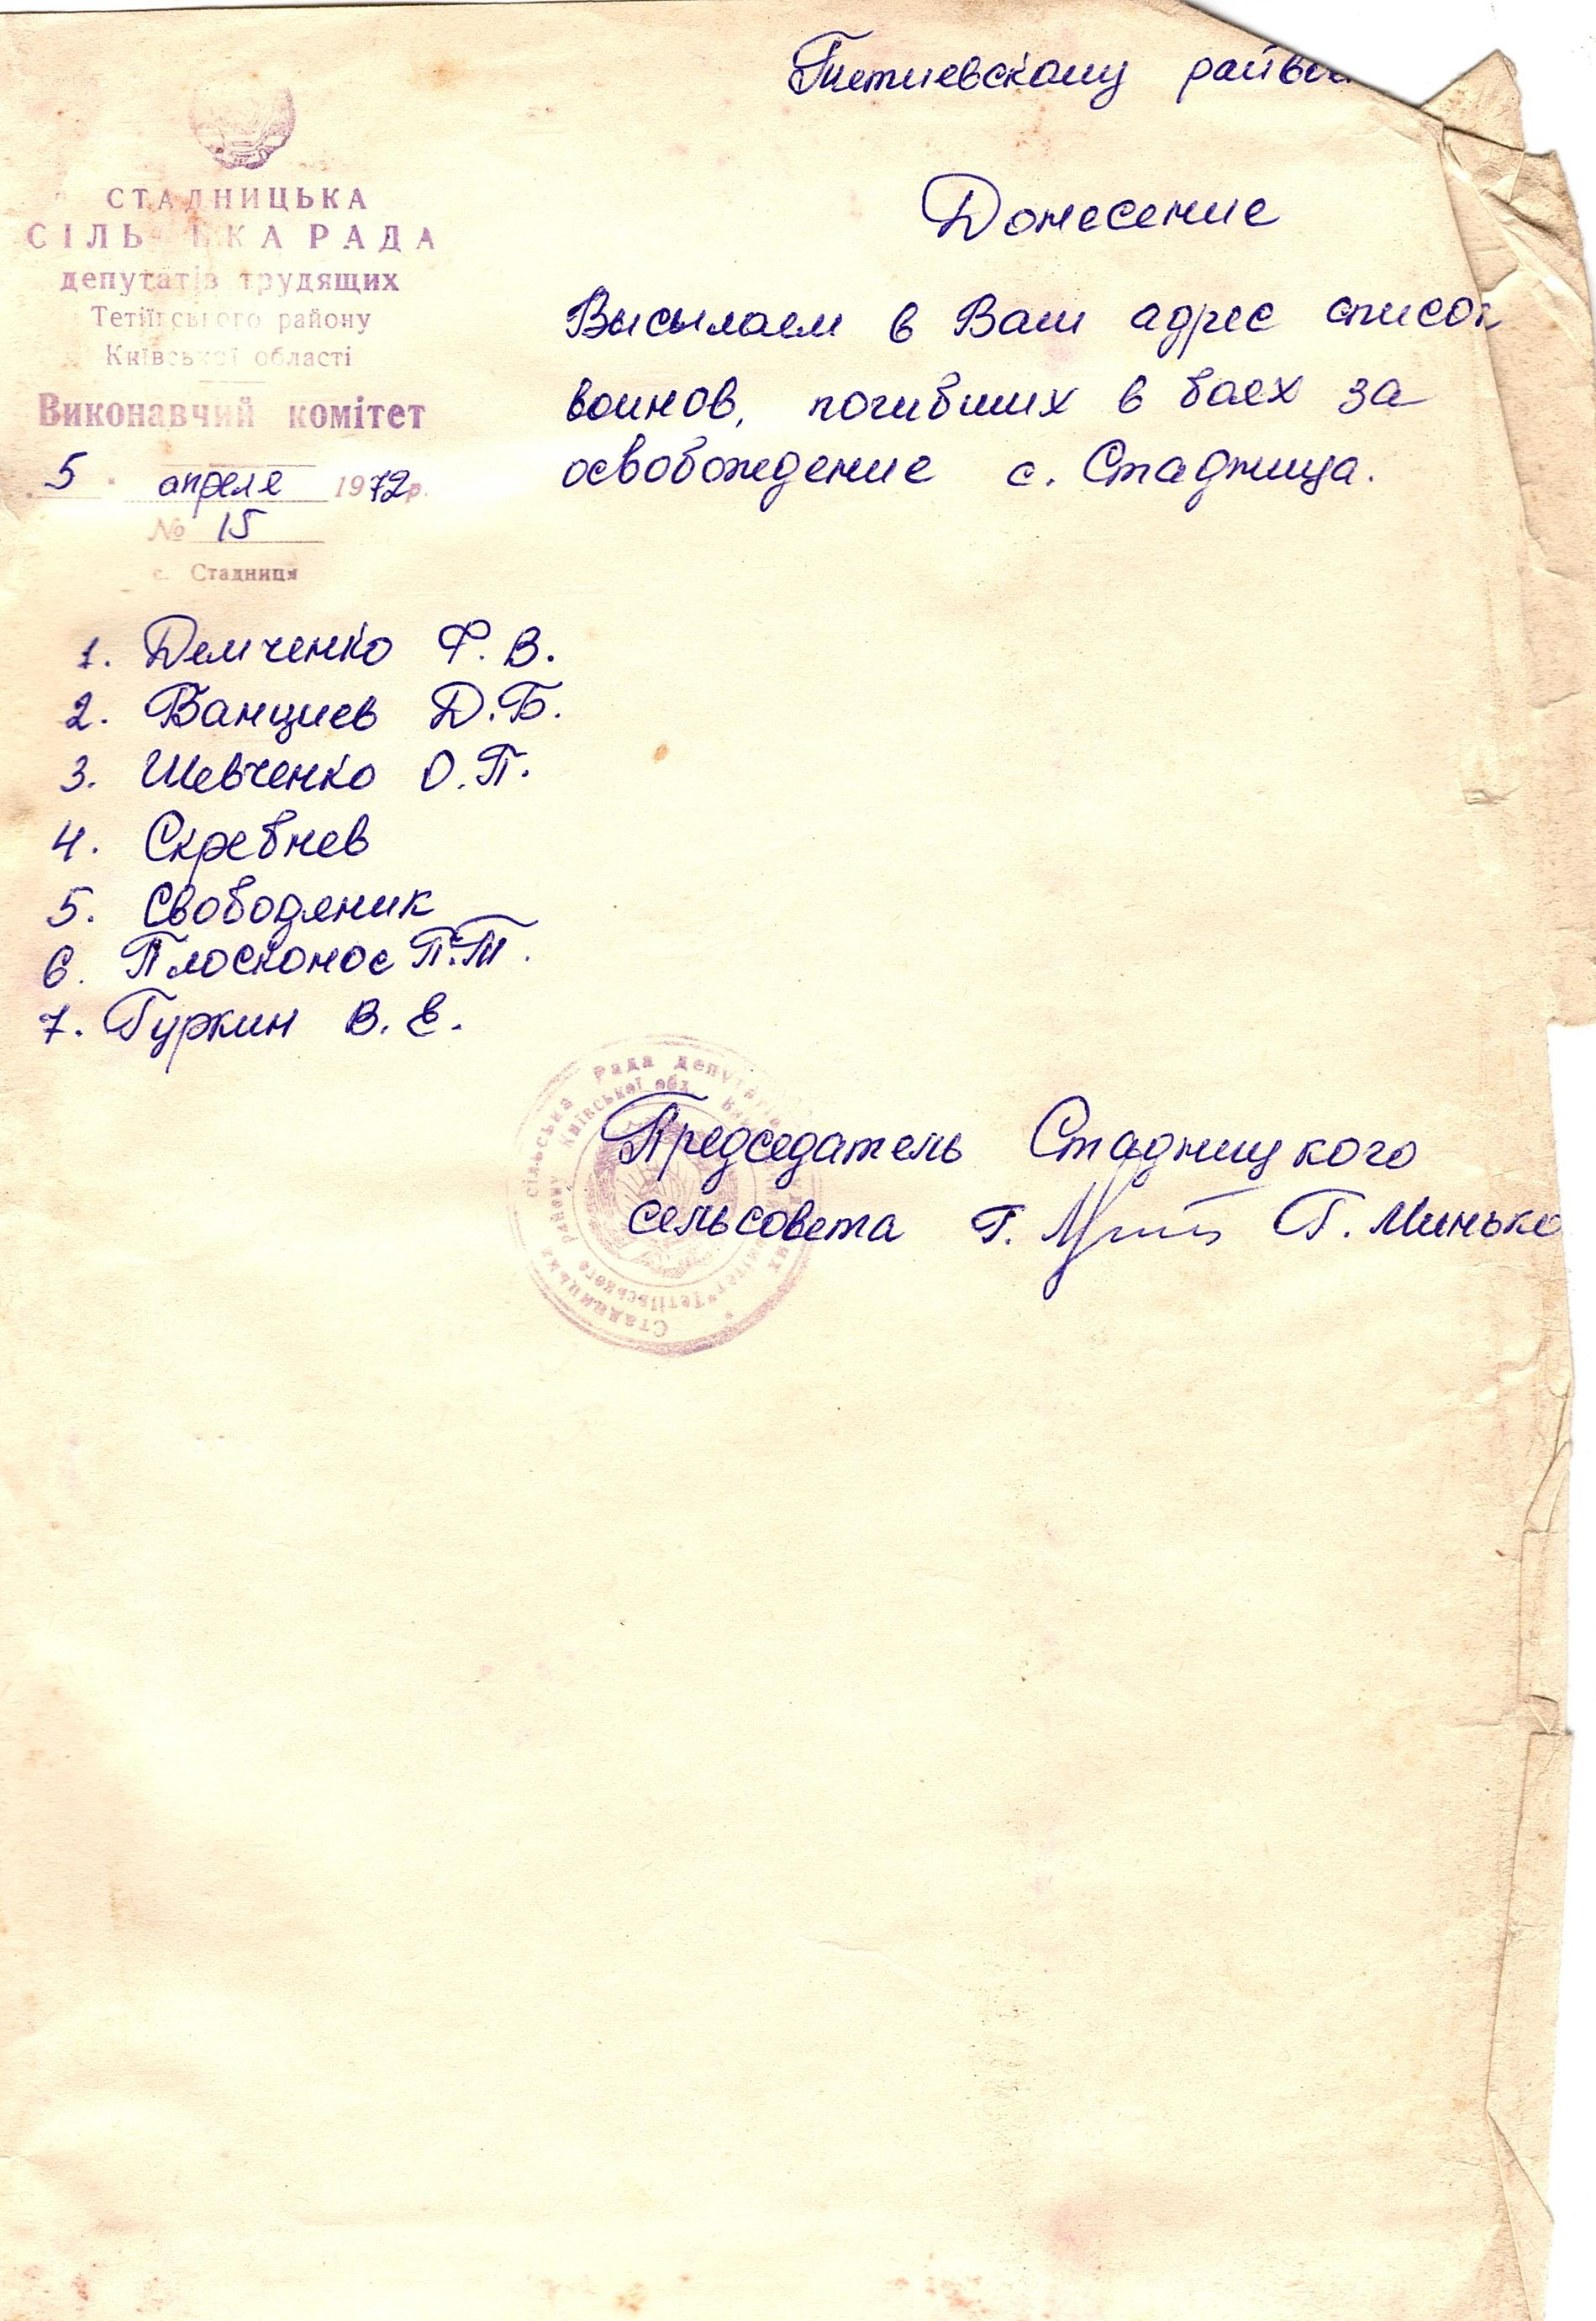 Тетиевскому райвое
СТАДНИЦЬКА
СІЛЬСЬКА РАДА
депутатів трудящих
Тетіївського району
Київської області
Виконавчий комітет
5 апреля 1972р.
№ 15
с. Стадниця
Донесение
Высылаем в Ваш адрес список
воинов, погибших в боях за
освобождение с. Стадница.
1. Демченко Ф. В.
2. Ванциев Д.Б.
3. Шевченко О.П.
4. Скребнев
5. Свободяник
6. Плосконос П.Т.
7. Гуркин В. Е.
Председатель Стадницкого
сельсовета Г. Г. Минько
Стадницька сільська Рада депутатів
Тетіївського району Київської обл.